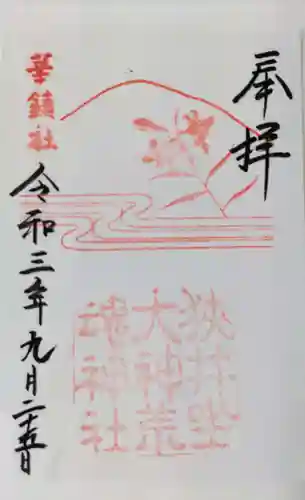 奉拝
華鎮社
狭井坐
大神荒
魂神社
令和三年九月二十五日